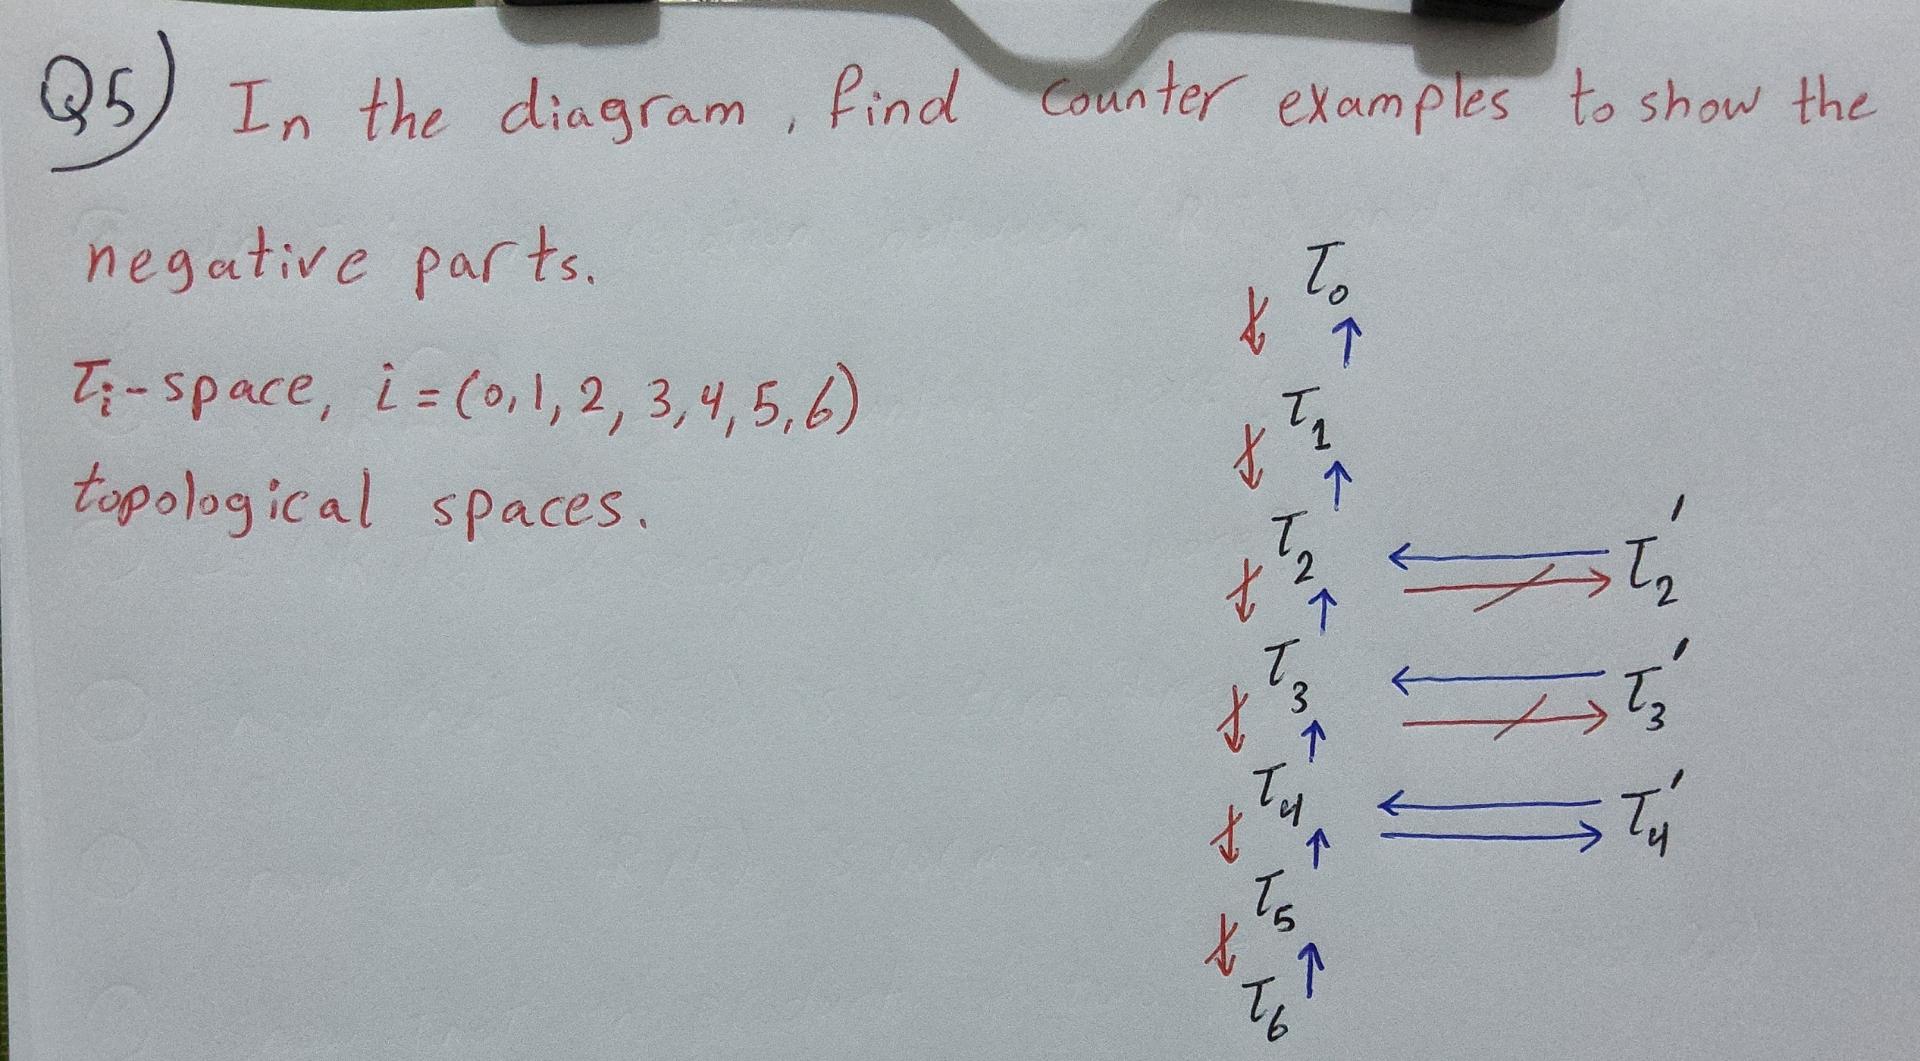 Q5) In the diagram, find counter examples to show the
negative parts.
T₀
Tᵢ-space, i=(0,1,2,3,4,5,6)
T₁
topological spaces.
T₂ T₂'
T₃ T₃'
T₄ T₄'
T₅
T₆